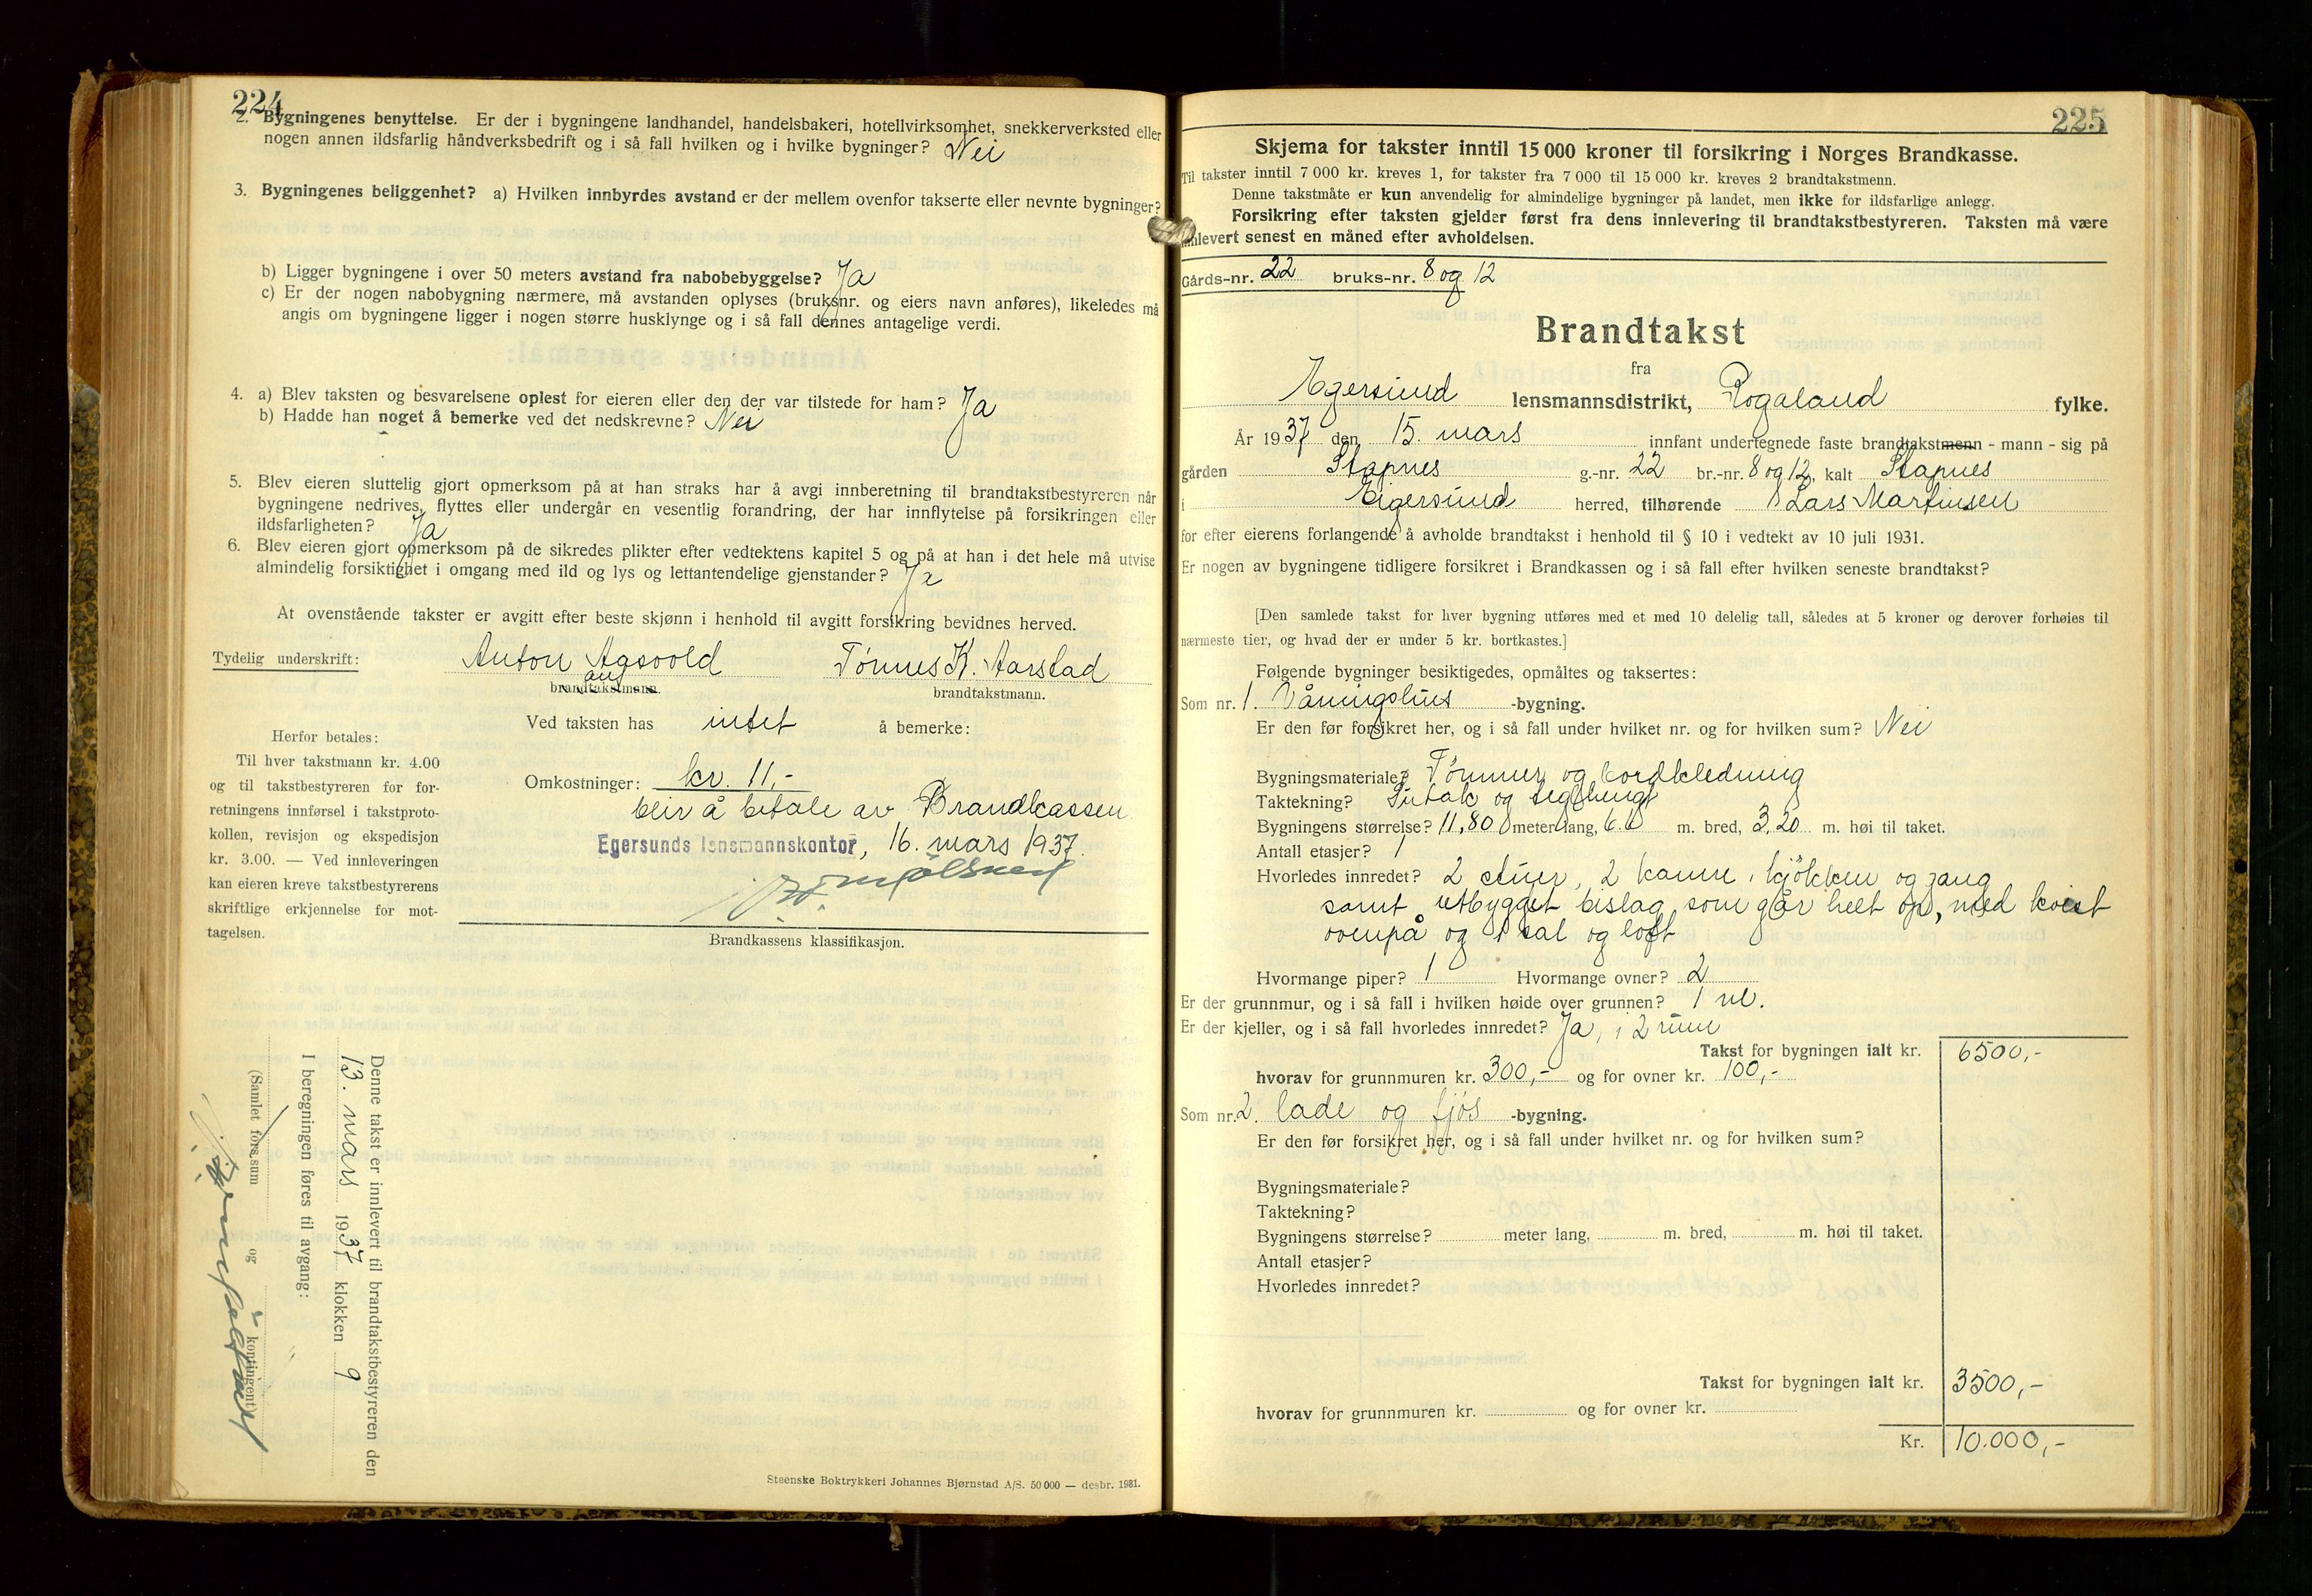 224
2. Bygningenes benyttelse. Er der i bygningene landhandel, handelsbakeri, hotellvirksomhet, snekkerverksted eller
nogen annen ildsfarlig håndverksbedrift og i så fall hvilken og i hvilke bygninger? Nei
3. Bygningenes beliggenhet? a) Hvilken innbyrdes avstand er der mellem ovenfor takserte eller nevnte bygninger?
b) Ligger bygningene i over 50 meters avstand fra nabobebyggelse? Ja
c) Er der nogen nabobygning nærmere, må avstanden oplyses (bruksnr. og eiers navn anføres), likeledes må
angis om bygningene ligger i nogen større husklynge og i så fall dennes antagelige verdi.
4. a) Blev taksten og besvarelsene oplest for eieren eller den der var tilstede for ham? Ja
b) Hadde han noget å bemerke ved det nedskrevne? Nei
5. Blev eieren sluttelig gjort opmerksom på at han straks har å avgi innberetning til brandtakstbestyreren når
bygningene nedrives, flyttes eller undergår en vesentlig forandring, der har innflytelse på forsikringen eller
ildsfarligheten? Ja
6. Blev eieren gjort opmerksom på de sikredes plikter efter vedtektens kapitel 5 og på at han i det hele må utvise
almindelig forsiktighet i omgang med ild og lys og lettantendelige gjenstander? Ja
At ovenstående takster er avgitt efter beste skjønn i henhold til avgitt forsikring bevidnes herved.
Tydelig underskrift: Anton Aasvold Tönnes K. Aarstad
brandtakstmann. brandtakstmann.
Ved taksten has intet å bemerke:
Herfor betales:
Til hver takstmann kr. 4.00
og til takstbestyreren for for-
retningens innførsel i takstproto-
kollen, revisjon og ekspedisjon
kr. 3.00. — Ved innleveringen
kan eieren kreve takstbestyrerens
skriftlige erkjennelse for mot-
tagelsen.
Omkostninger: kr. 11,-
blir å betale av Brandkassen
Egersunds lensmannskontor, 16. mars 1937.
Brandkassens klassifikasjon.
Denne takst er innlevert til brandtakstbestyreren den
13. mars 1937 klokken 9
I beregningen føres til avgang:
(Samlet fors.sum og kontingent)
Steenske Boktrykkeri Johannes Bjørnstad A/S. 50 000 — desbr. 1931.
225
Skjema for takster inntil 15 000 kroner til forsikring i Norges Brandkasse.
Til takster inntil 7 000 kr. kreves 1, for takster fra 7 000 til 15 000 kr. kreves 2 brandtakstmenn.
Denne takstmåte er kun anvendelig for almindelige bygninger på landet, men ikke for ildsfarlige anlegg.
Forsikring efter taksten gjelder først fra dens innlevering til brandtakstbestyreren. Taksten må være
innlevert senest en måned efter avholdelsen.
Gårds-nr. 22 bruks-nr. 8 og 12
Brandtakst
fra
Egersund lensmannsdistrikt, Rogaland fylke.
År 1937 den 15. mars innfant undertegnede faste brandtakstmenn - mann - sig på
gården Stapnes g.-nr. 22 br.-nr. 8 og 12, kalt Stapnes
i Eigersund herred, tilhørende Lars Martinsen
for efter eierens forlangende å avholde brandtakst i henhold til § 10 i vedtekt av 10 juli 1931.
Er nogen av bygningene tidligere forsikret i Brandkassen og i så fall efter hvilken seneste brandtakst?
[Den samlede takst for hver bygning utføres med et med 10 delelig tall, således at 5 kroner og derover forhøies til
nærmeste tier, og hvad der er under 5 kr. bortkastes.]
Følgende bygninger besiktigedes, opmåltes og taksertes:
Som nr. 1. Våningshus -bygning.
Er den før forsikret her, og i så fall under hvilket nr. og for hvilken sum? Nei
Bygningsmateriale? Tömmer og bordkledning
Taktekning? Sutak og teglhengt
Bygningens størrelse? 11,80 meter lang, 6.60 m. bred, 3,20 m. høi til taket.
Antall etasjer? 1
Hvorledes innredet? 2 stuer, 2 kamre, kjökken og gang
samt utbygget bislag som går helt op, med kvist
ovenpå og 1 sal og loft
Hvormange piper? 1 Hvormange ovner? 2
Er der grunnmur, og i så fall i hvilken høide over grunnen? 1 m.
Er der kjeller, og i så fall hvorledes innredet? Ja, i 2 rum
Takst for bygningen ialt kr. 6500,-
hvorav for grunnmuren kr. 300,- og for ovner kr. 100,-
Som nr. 2. lade og fjös -bygning.
Er den før forsikret her, og i så fall under hvilket nr. og for hvilken sum?
Bygningsmateriale?
Taktekning?
Bygningens størrelse? meter lang, m. bred, m. høi til taket.
Antall etasjer?
Hvorledes innredet?
Takst for bygningen ialt kr. 3500,-
hvorav for grunnmuren kr. og for ovner kr.
Kr. 10.000,-